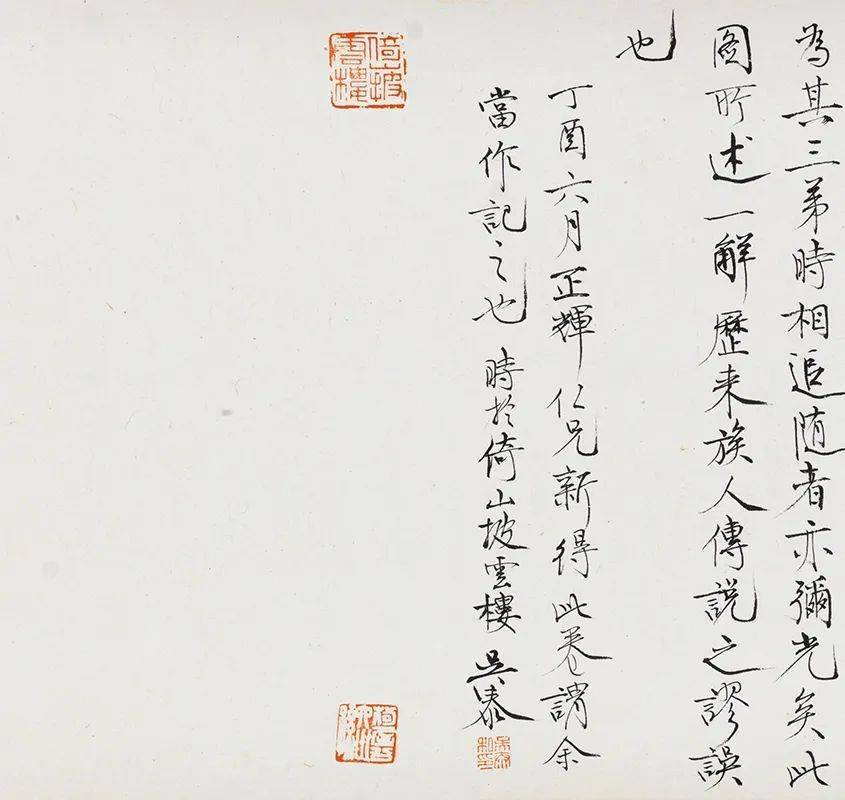 為其三弟時相追随者亦彌光矣此
圖所述一解歷来族人傳説之謬誤
也
丁酉六月正輝仁兄新得此卷謂余
當作記之也 時於倚山坡雲樓 吳泰
倚山坡雲樓